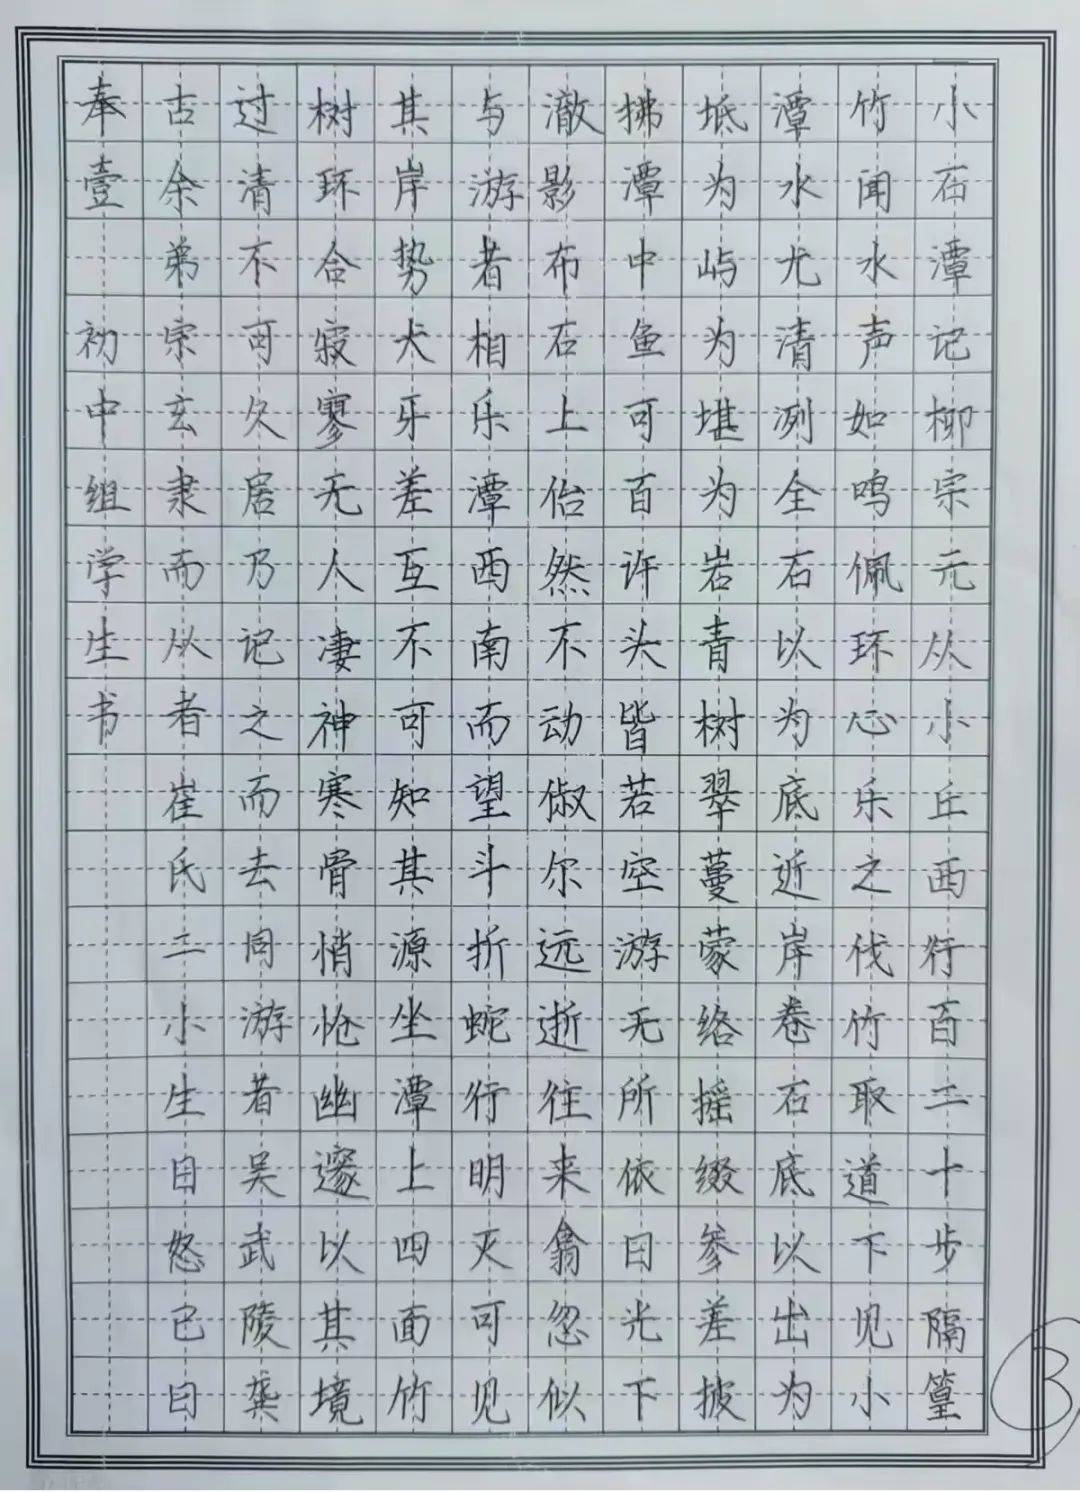 小石潭记柳宗元从小丘西行百二十步隔篁
竹闻水声如鸣佩环心乐之伐竹取道下见小
潭水尤清冽全石以为底近岸卷石底以出为
坻为屿为堪为岩青树翠蔓蒙络摇缀参差披
拂潭中鱼可百许头皆若空游无所依日光下
澈影布石上佁然不动俶尔远逝往来翕忽似
与游者相乐潭西南而望斗折蛇行明灭可见
其岸势犬牙差互不可知其源坐潭上四面竹
树环合寂寥无人凄神寒骨悄怆幽邃以其境
过清不可久居乃记之而去同游者吴武陵龚
古余弟宗玄隶而从者崔氏二小生曰恕已曰
奉壹 初中组学生书